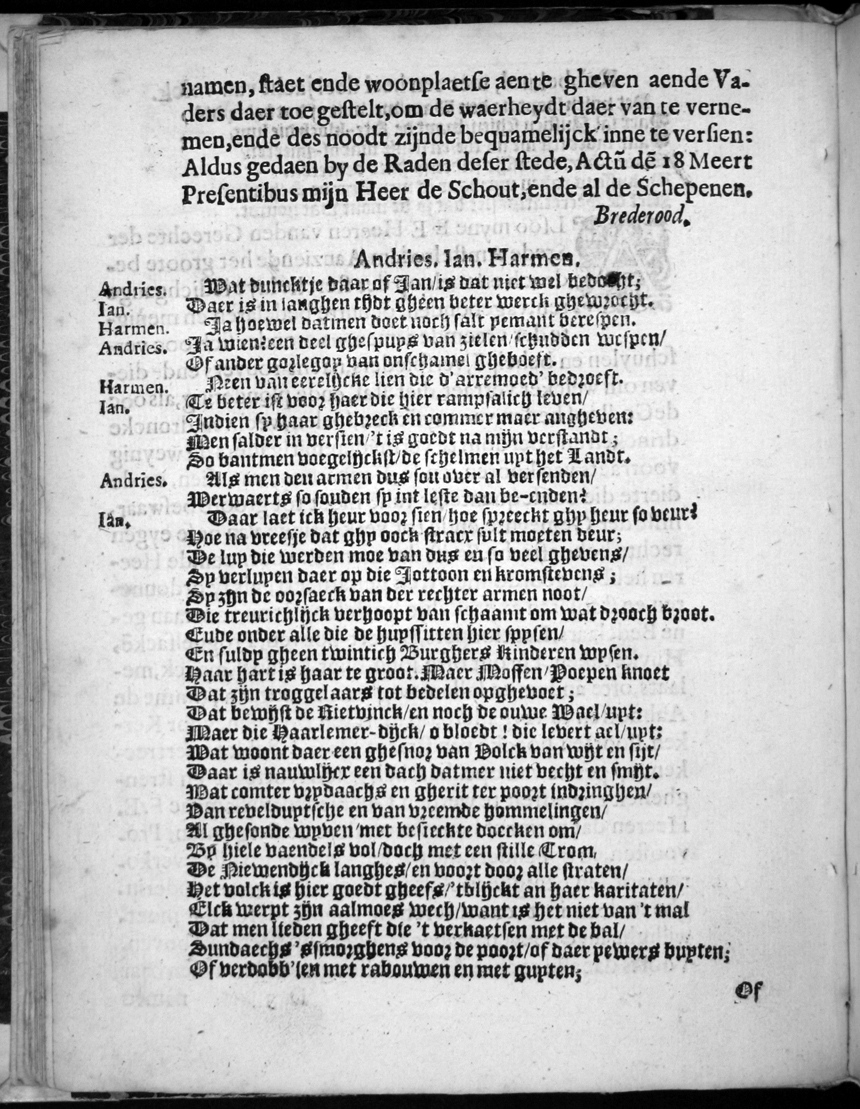 namen, staet ende woonplaetse aen te gheven aende Va-
ders daer toe gestelt, om de waerheydt daer van te verne-
men, ende des noodt zijnde bequamelijck inne te versien:
Aldus gedaen by de Raden deser stede, Actũ dẽ 18 Meert
Presentibus mijn Heer de Schout, ende al de Schepenen.
Brederood.
Andries. Ian. Harmen.
Andries. Wat duncktje daar of Jan/is dat niet wel bedocht;
Ian. Daer is in langhen tijdt gheen beter werck ghewrocht.
Harmen. Ja hoewel datmen doet noch salt yemant berespen.
Andries. Ja wien? een deel ghespuys van zielen/schudden wespen/
Of ander gorlegoy van onschamel gheboeft.
Harmen. Neen van eerelijcke lien die d'arremoed' bedroeft.
Ian. Te beter ist voor haer die hier rampsalich leven/
Indien sy haar ghebreck en commer maer angheven:
Men salder in versien/'t is goedt na mijn verstandt;
So bantmen voegelijckst/de schelmen uyt het Landt.
Andries. Als men den armen dus sou over al versenden/
Werwaerts so souden sy int leste dan be-enden?
Ian. Daar laet ick heur voor sien/hoe spreeckt ghy heur so veur?
Hoe na vreesje dat ghy oock stracx sult moeten deur;
De luy die werden moe van dus en so veel ghevens/
Sy verluyen daer op die Jottoon en kromstevens;
Sy zijn de oorsaeck van der rechter armen noot/
Die treurichlijck verhoopt van schaamt om wat drooch broot.
Ende onder alle die de huyssitten hier spysen/
En suldy gheen twintich Burghers Kinderen wysen.
Haar hart is haar te groot. Maer Moffen/Poepen knoet
Dat zijn troggelaars tot bedelen opghevoet;
Dat bewijst de Rietvinck/en noch de ouwe Wael/uyt:
Maer die Haarlemer-dijck/o bloedt! die levert ael/uyt:
Wat woont daer een ghesnor van Volck van wijt en sijt/
Daar is nauwlijcx een dach datmer niet vecht en smijt.
Wat comter vrydaachs en gherit ter poort indringhen/
Van revelduytsche en van vreemde hommelingen/
Al ghesonde wyven/met besieckte doecken om/
By hiele vaendels vol/doch met een stille Trom,
De Niewendijck langhes/en voort door alle straten/
Het volck is hier goedt gheefs/'tblijckt an haer karitaten/
Elck werpt zijn aalmoes wech/want is het niet van 't mal
Dat men lieden gheeft die 't verkaetsen met de bal/
Sundaechs 'ssmorghens voor de poort/of daer yewers buyten;
Of verdobb'len met rabouwen en met guyten;
Of